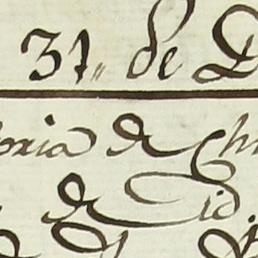 31,, de D
oria de Chr
de Cid.